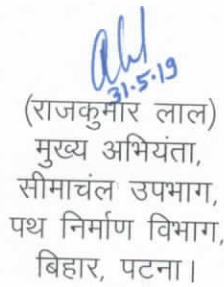 31.5.19
(राजकुमार लाल)
मुख्य अभियंता,
सीमाचंल उपभाग,
पथ निर्माण विभाग,
बिहार, पटना।